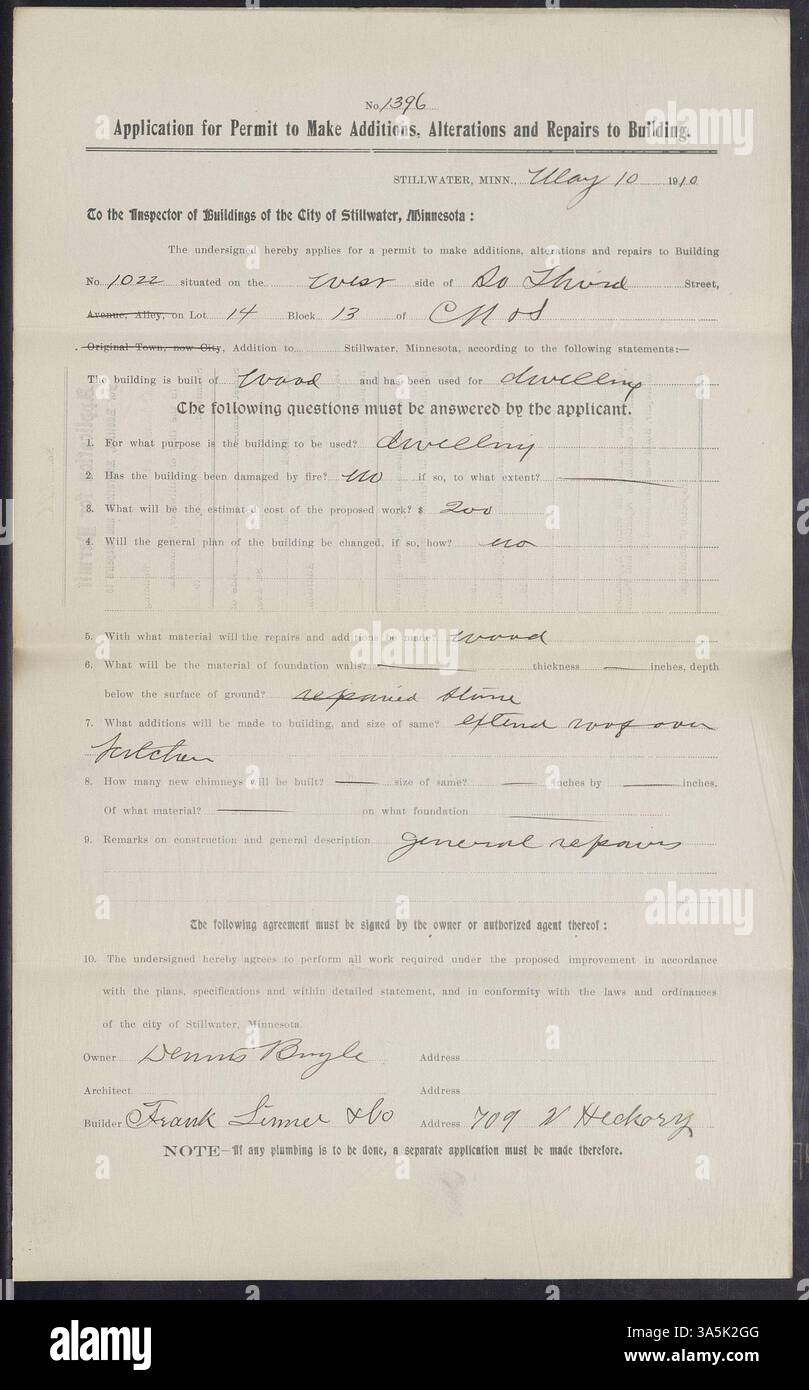 No. 1396
Application for Permit to Make Additions, Alterations and Repairs to Building.
STILLWATER, MINN., May 10 1910
To the Inspector of Buildings of the City of Stillwater, Minnesota:
The undersigned hereby applies for a permit to make additions, alterations and repairs to Building
No. 1022 situated on the West side of So Third Street,
Avenue, Alley, on Lot 14 Block 13 of
Original Town, now City, Addition to Stillwater, Minnesota, according to the following statements:—
The building is built of Wood and has been used for dwelling
The following questions must be answered by the applicant.
1. For what purpose is the building to be used? dwelling
2. Has the building been damaged by fire? no if so, to what extent?
3. What will be the estimated cost of the proposed work? $ 200
4. Will the general plan of the building be changed, if so, how? no
5. With what material will the repairs and additions be made? wood
6. What will be the material of foundation walls? thickness inches, depth
below the surface of ground? repaired stone
7. What additions will be made to building, and size of same? extend roof over
kitchen
8. How many new chimneys will be built? size of same? inches by inches.
Of what material? on what foundation
9. Remarks on construction and general description general repairs
The following agreement must be signed by the owner or authorized agent thereof:
10. The undersigned hereby agrees to perform all work required under the proposed improvement in accordance
with the plans, specifications and within detailed statement, and in conformity with the laws and ordinances
of the city of Stillwater, Minnesota.
Owner Dennis Boyle Address
Architect Address
Builder Frank Linner & Co Address 709 W Heckory
NOTE—If any plumbing is to be done, a separate application must be made therefore.
alamy
a
alamy
Image ID: 3A5K2GG
www.alamy.com